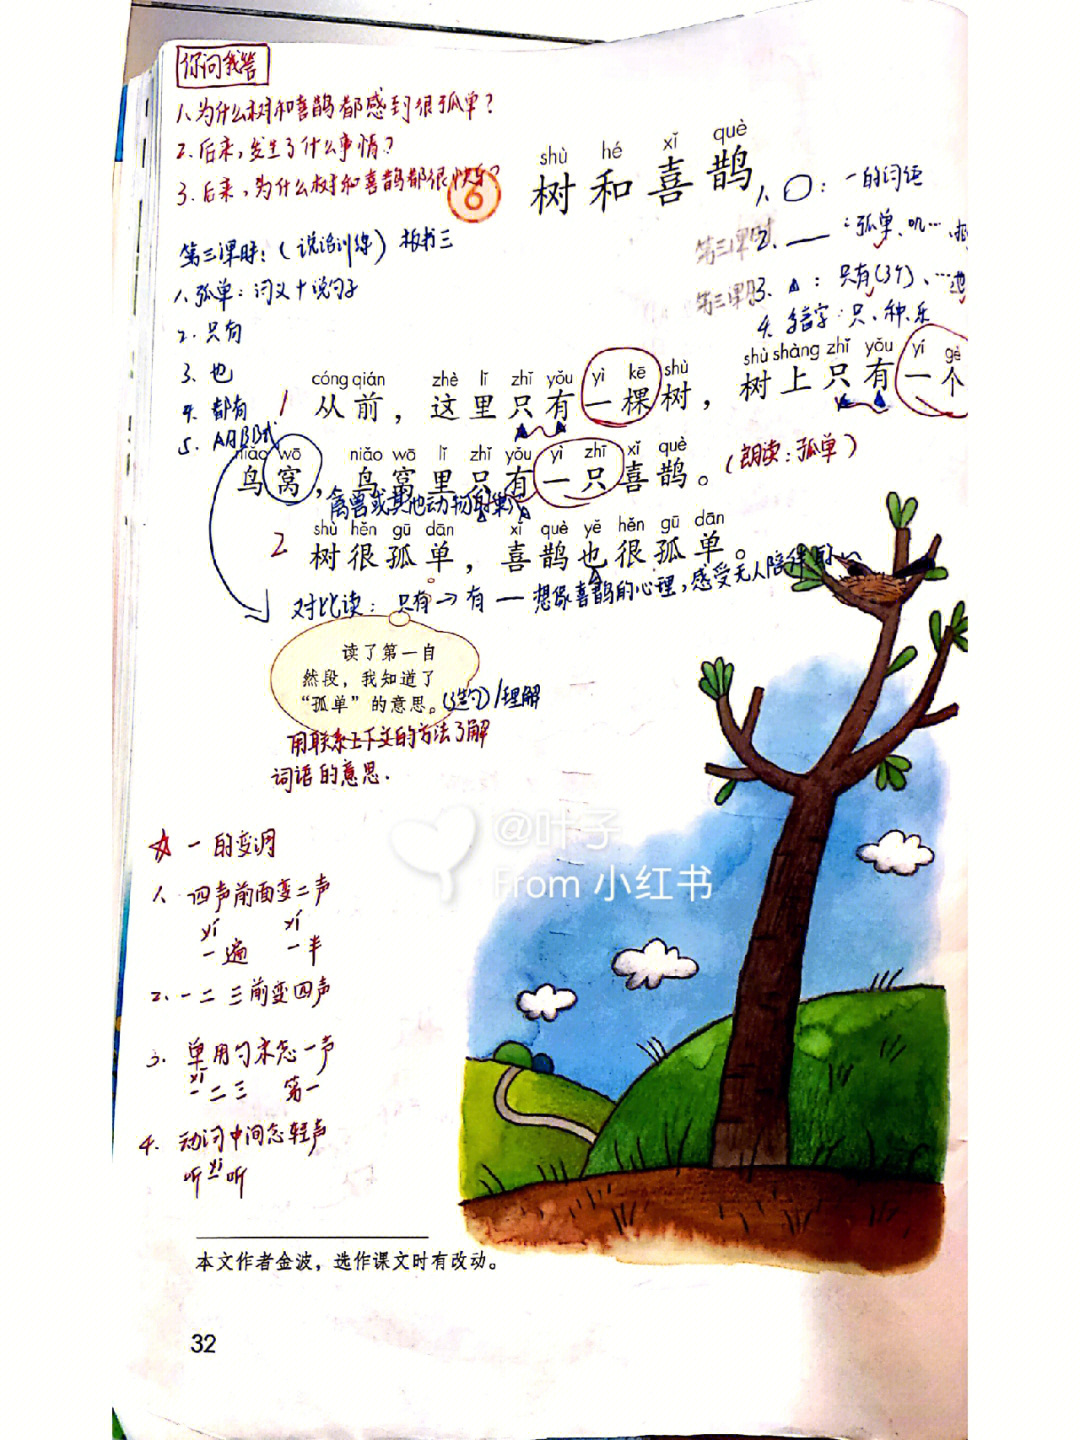 你问我答
1、为什么树和喜鹊都感到很孤单？
2、后来，发生了什么事情？
3、后来，为什么树和喜鹊都很快乐？
6
shù hé xǐ què
树和喜鹊
1、〇：一的词语
2、——：孤单、叽…
3、▲：只有(3个)、…也
4、多音字：只、种、乐
第三课时
第三课时
第三课时：(说话训练) 板书三
1、孤单：词义+说句子
2、只有
3、也
4、都有
5、AABB式
cóng qián zhè lǐ zhǐ yǒu yì kē shù shù shàng zhǐ yǒu yí gè
1 从前，这里只有一棵树，树上只有一个
niǎo wō niǎo wō lǐ zhǐ yǒu yì zhī xǐ què
鸟窝，鸟窝里只有一只喜鹊。(朗读：孤单)
禽兽或其他动物的巢穴
shù hěn gū dān xǐ què yě hěn gū dān
2 树很孤单，喜鹊也很孤单。
对比读：只有→有 — 想像喜鹊的心理，感受无人陪伴的
读了第一自
然段，我知道了
“孤单”的意思。(造句)/理解
用联系上下文的方法了解
词语的意思.
☆ 一的变调
1、四声前面变二声
yí yí
一遍 一半
2、一二三前变四声
3、单用句末念一声
yī
一二三 第一
4、动词中间念轻声
yi
听一听
@叶子
From 小红书
本文作者金波，选作课文时有改动。
32